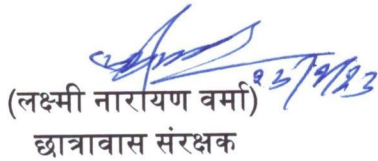 (लक्ष्मी नारायण वर्मा)
छात्रावास संरक्षक